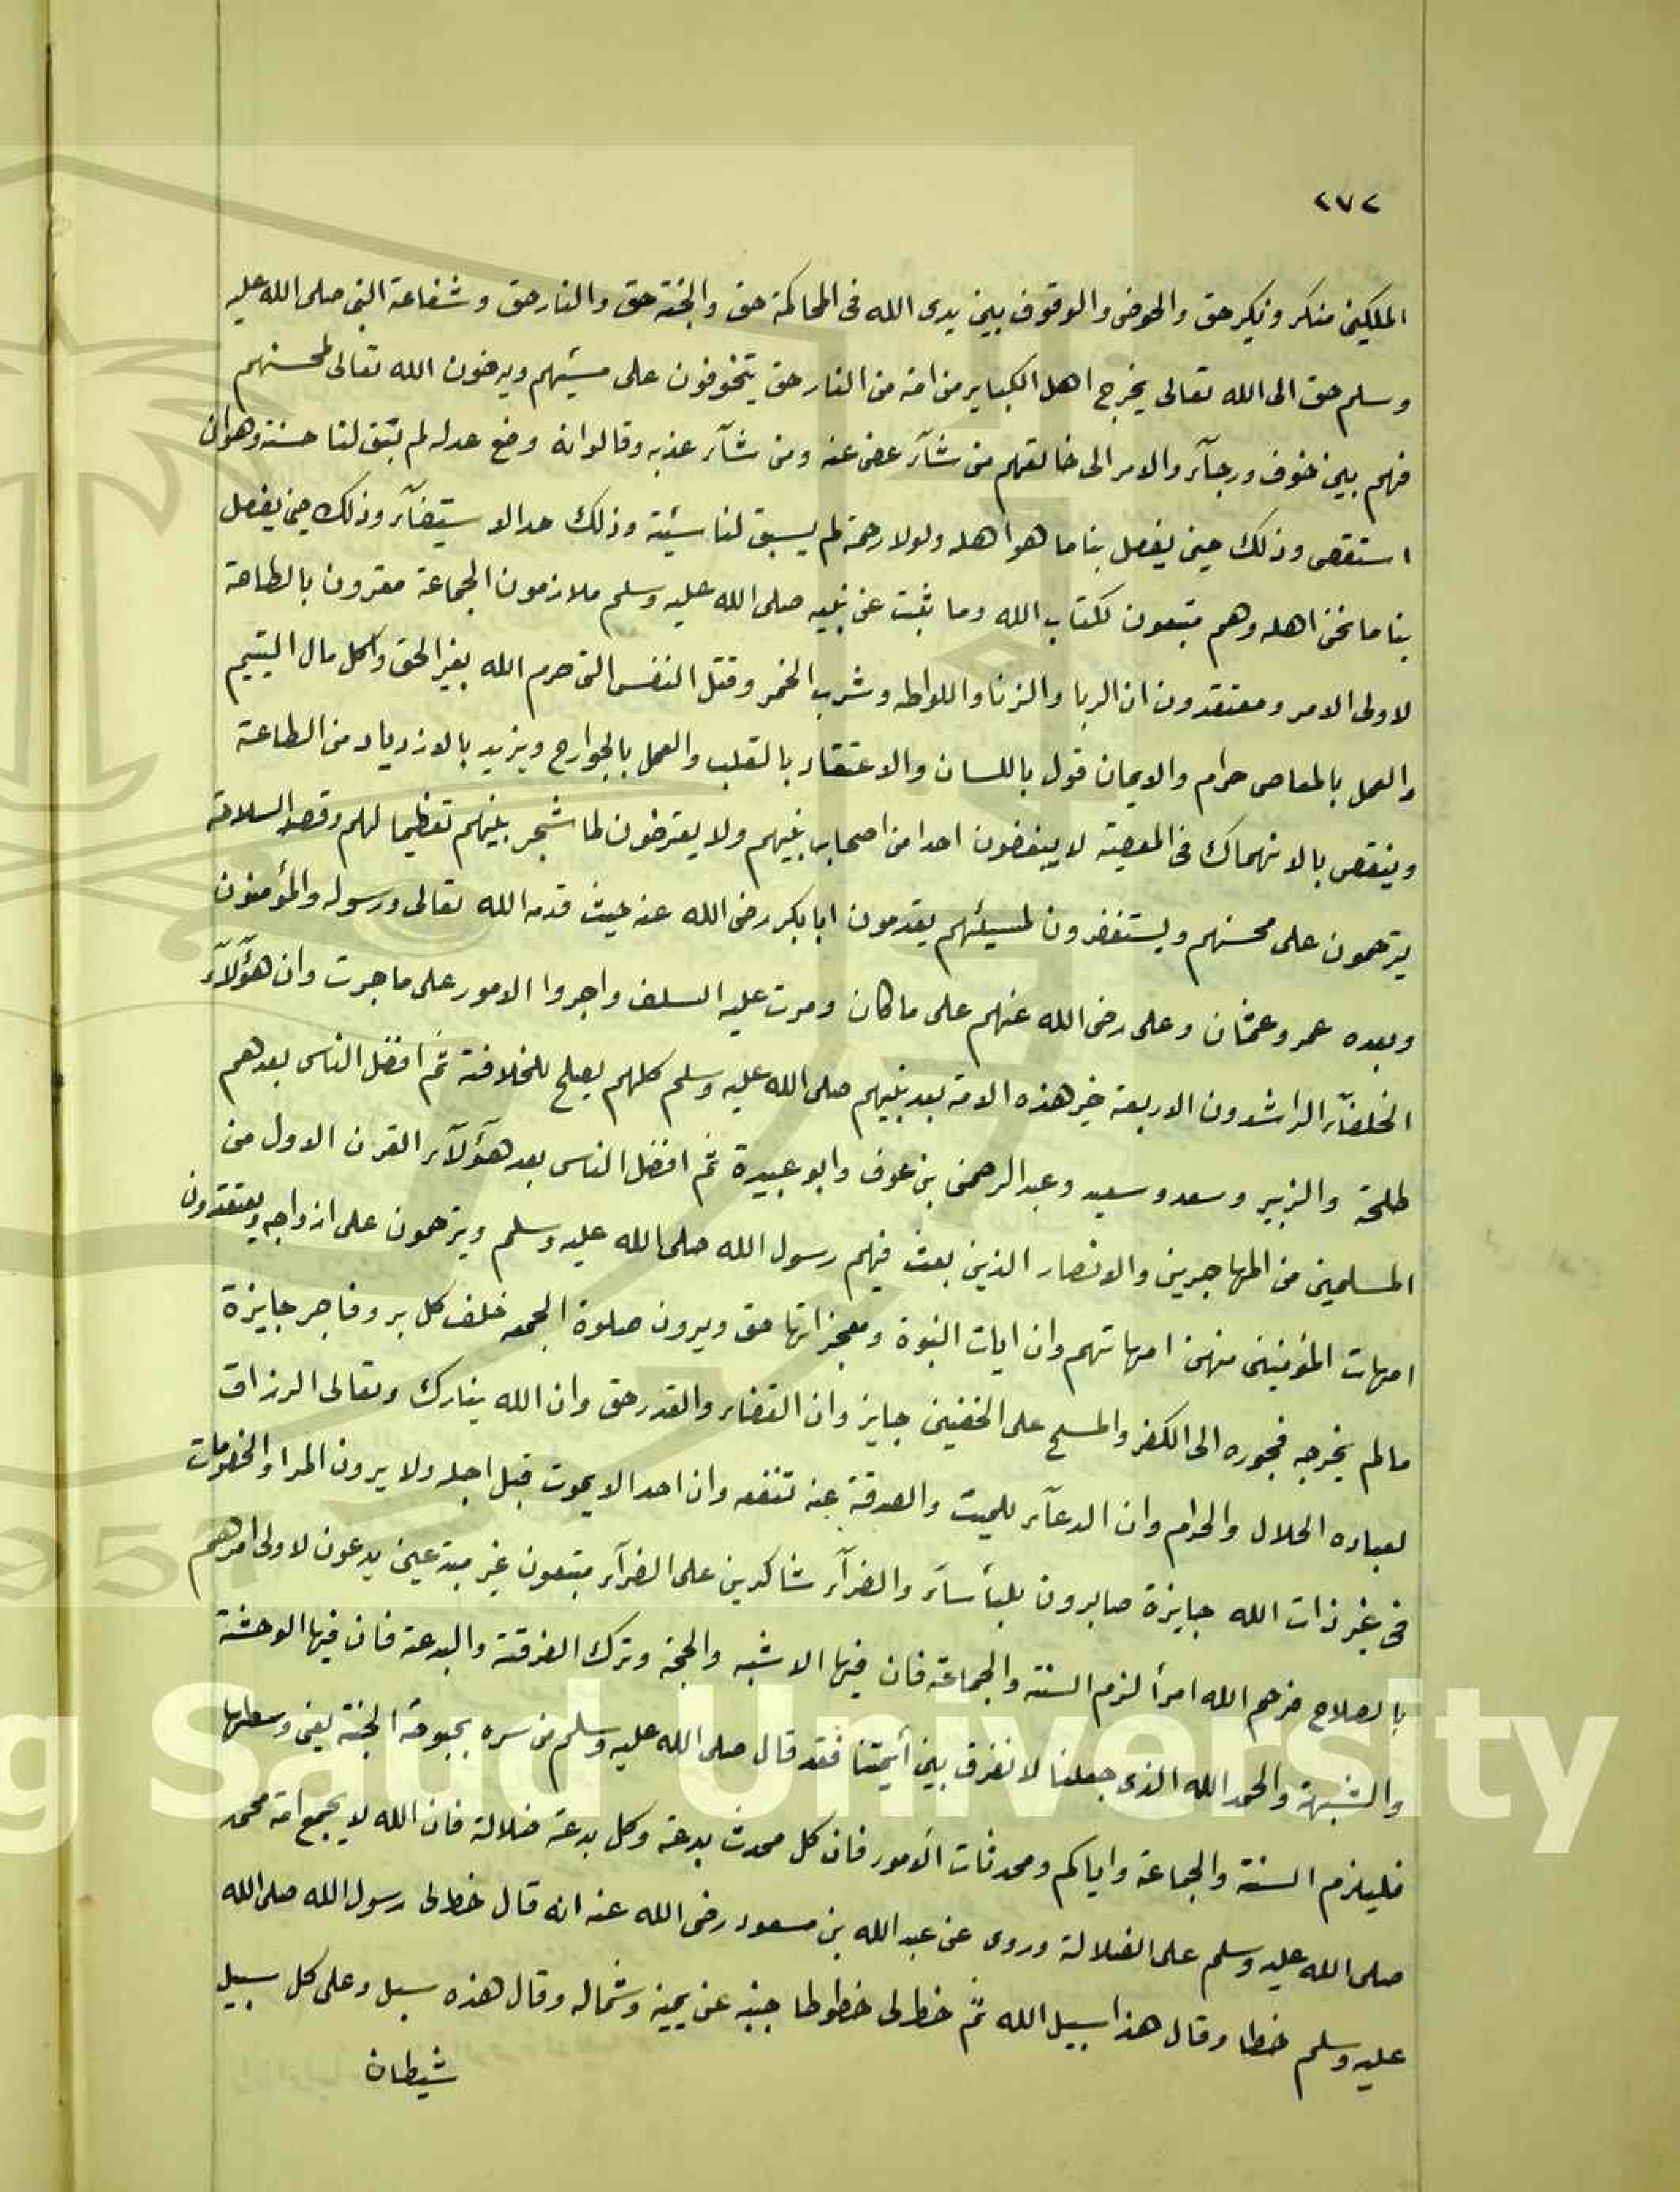 ٢٧٢
الملكين منكر ونكير حق والحوض والوقوف بين يدى الله فى المحاكمة حق والجنة حق والنار حق وشفاعة النبى صلى الله عليه
وسلم حق الى الله تعالى يخرج اهل الكباير من امته من النار حق يتخوفون على مسيئهم ويرضون الله تعالى لمحسنهم
فهم بين خوف ورجآء والامر الى خالقهم من شآء عفى عنه ومن شآء عذبه وقالوا انه وضع عدله لم تبق لنا حسنة وهو ان
استقصى وذلك حين يفصل بنا ما هو اهله ولولا رحمة لم يسبق لنا سيئة وذلك حد الاستيفآء وذلك حين يفصل
بنا ما نحن اهله وهم متبعون لكتاب الله وما ثبت عن نبيه صلى الله عليه وسلم ملازمون الجماعة مقرون بالطاعة
لاولى الامر ومعتقدون ان الربا والزنا واللواطه وشرب الخمر وقتل النفس التى حرم الله بغير الحق واكل مال اليتيم
والعمل بالمعاصى حرام والايمان قول باللسان والاعتقاد بالقلب والعمل بالجوارح ويزيد بالازدياد من الطاعة
وينقص بالانهماك فى المعصية لا يبغضون احدا من اصحاب نبيهم ولا يعترضون لما شجر بينهم تعظيما لهم وقصد السلامة
يترحمون على محسنهم ويستغفرون لمسيئهم يقدمون ابا بكر رضى الله عنه حيث قدمه الله تعالى ورسوله والمؤمنون
وبعده عمر وعثمان وعلى رضى الله عنهم على ما كان ومرت عليه السلف واجروا الامور على ما جرت وان هؤلآء
الخلفآء الراشدون الاربعة خير هذه الامة بعد نبيهم صلى الله عليه وسلم كلهم يصلح للخلافة ثم افضل الناس بعدهم
طلحة والزبير وسعد وسعيد وعبد الرحمن بن عوف وابو عبيدة ثم افضل الناس بعد هؤلآء القرن الاول من
المسلمين من المهاجرين والانصار الذين بعث فيهم رسول الله صلى الله عليه وسلم ويترحمون على ازواجه ويعتقدون
امهات المؤمنين منهن امهاتهم وان ايات النبوة ومعجزاتها حق ويرون صلوة الجمعه خلف كل بر وفاجر جايزة
مالم يخرجه فجوره الى الكفر والمسح على الخفين جايز وان القضاء والقدر حق وان الله يتبارك وتعالى الرزاق
لعباده الحلال والحرام وان الدعآء للميت والصدقة عنه تنفعه وان احدا لا يموت قبل اجله ولا يرون المرا والخصومات
فى غير ذات الله جايزة صابرون بلبأسآء والضرآء شاكرين على الضرآء متبعون غير مبتدعين يدعون لاولى امرهم
بالصلاح فرحم الله امرأ لزم السنة والجماعة فان فيها الاشبه والحجة وترك الفرقة والبدعة فان فيها الوحشة
والشبهة والحمد الله الذى جعلنا لا نفرق بين أيمتنا فقد قال صلى الله عليه وسلم من سره بحبوحة الجنة يعنى وسطها
فليلزم السنة والجماعة واياكم ومحدثات الامور فان كل محدث بدعة وكل بدعة ضلالة فان الله لا يجمع امة محمد
صلى الله عليه وسلم على الضلالة وروى عن عبد الله بن مسعود رضى الله عنه انه قال خط لى رسول الله صلى الله
عليه وسلم خطا وقال هذا سبيل الله ثم خط لى خطوطا جنبه عن يمينه وشماله وقال هذه سبل وعلى كل سبيل
شيطان
g Saud University